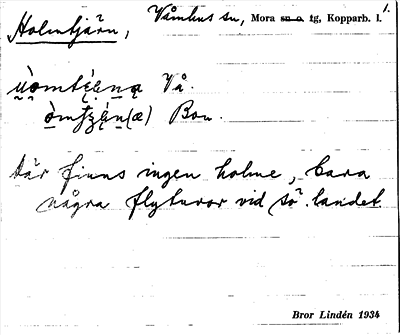 Holmtjärn, Våmhus sn, Mora sn o. tg, Kopparb. l. 1.
Vå.
Bon.
där finns ingen holme, bara
några flytuvor vid sö. landet
Bror Lindén 1934